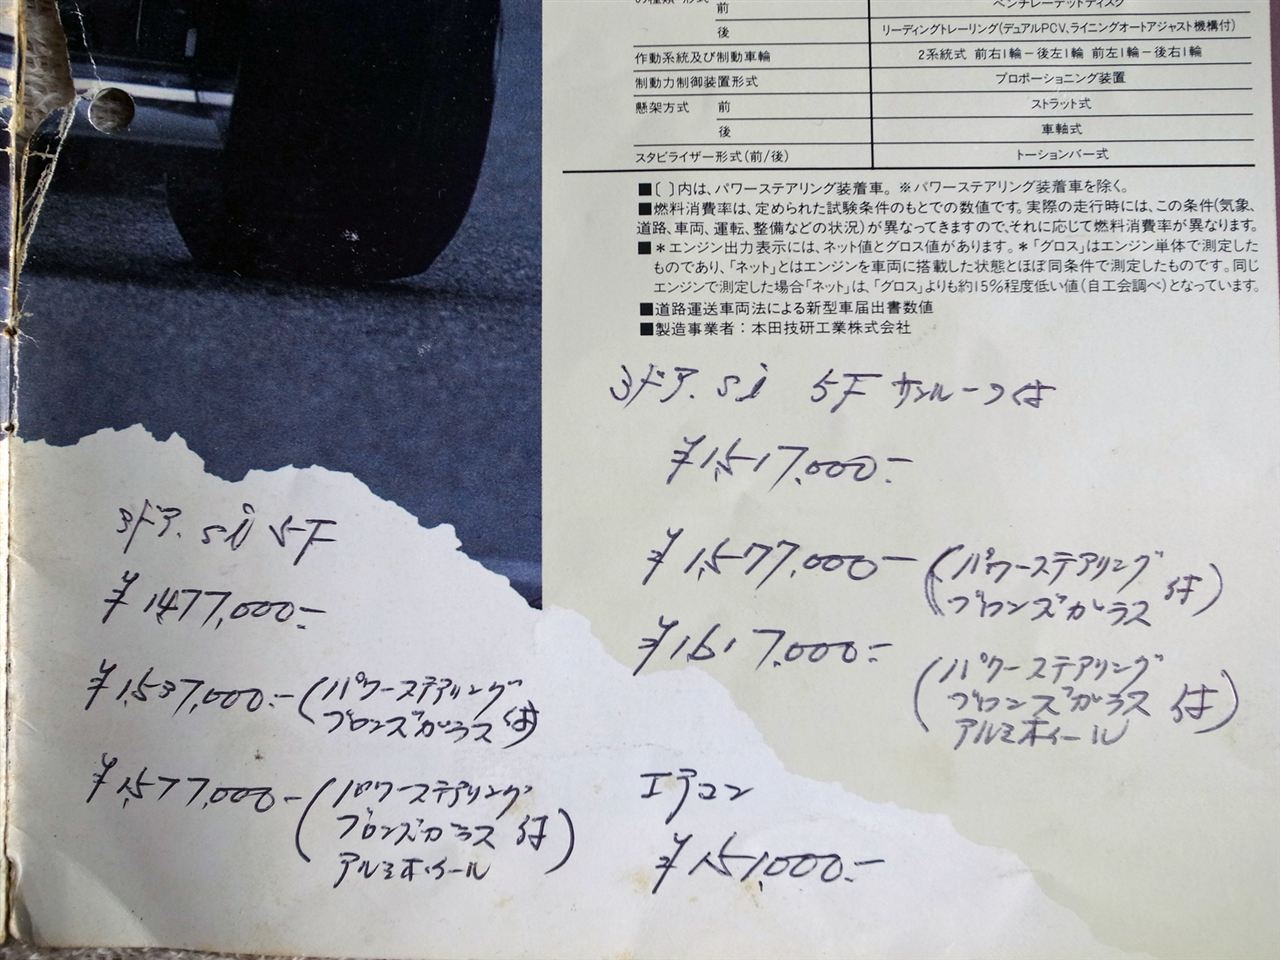 前 ベンチレーテッドディスク
後 リーディングトレーリング(デュアルPCV、ライニングオートアジャスト機構付)
作動系統及び制動車輪 2系統式 前右1輪－後左1輪 前左1輪－後右1輪
制動力制御装置形式 プロポーショニング装置
懸架方式 前 ストラット式
後 車軸式
スタビライザー形式(前/後) トーションバー式
■〔 〕内は、パワーステアリング装着車。※パワーステアリング装着車を除く。
■燃料消費率は、定められた試験条件のもとでの数値です。実際の走行時には、この条件(気象、
道路、車両、運転、整備などの状況)が異なってきますので、それに応じて燃料消費率が異なります。
■＊エンジン出力表示には、ネット値とグロス値があります。＊「グロス」はエンジン単体で測定した
ものであり、「ネット」とはエンジンを車両に搭載した状態とほぼ同条件で測定したものです。同じ
エンジンで測定した場合「ネット」は、「グロス」よりも約15％程度低い値(自工会調べ)となっています。
■道路運送車両法による新型車届出書数値
■製造事業者：本田技研工業株式会社
3ドア.si 5F サンルーフ付
¥1,517,000-
¥1,577,000-(パワーステアリング
ブロンズガラス 付)
¥1,617,000-
(パワーステアリング
ブロンズガラス 付)
アルミホイール
エアコン
¥151,000-
3ドア.si 5F
¥1477,000-
¥1,537,000-(パワーステアリング
ブロンズガラス付)
¥1,577,000-(パワーステアリング
ブロンズガラス 付)
アルミホイール